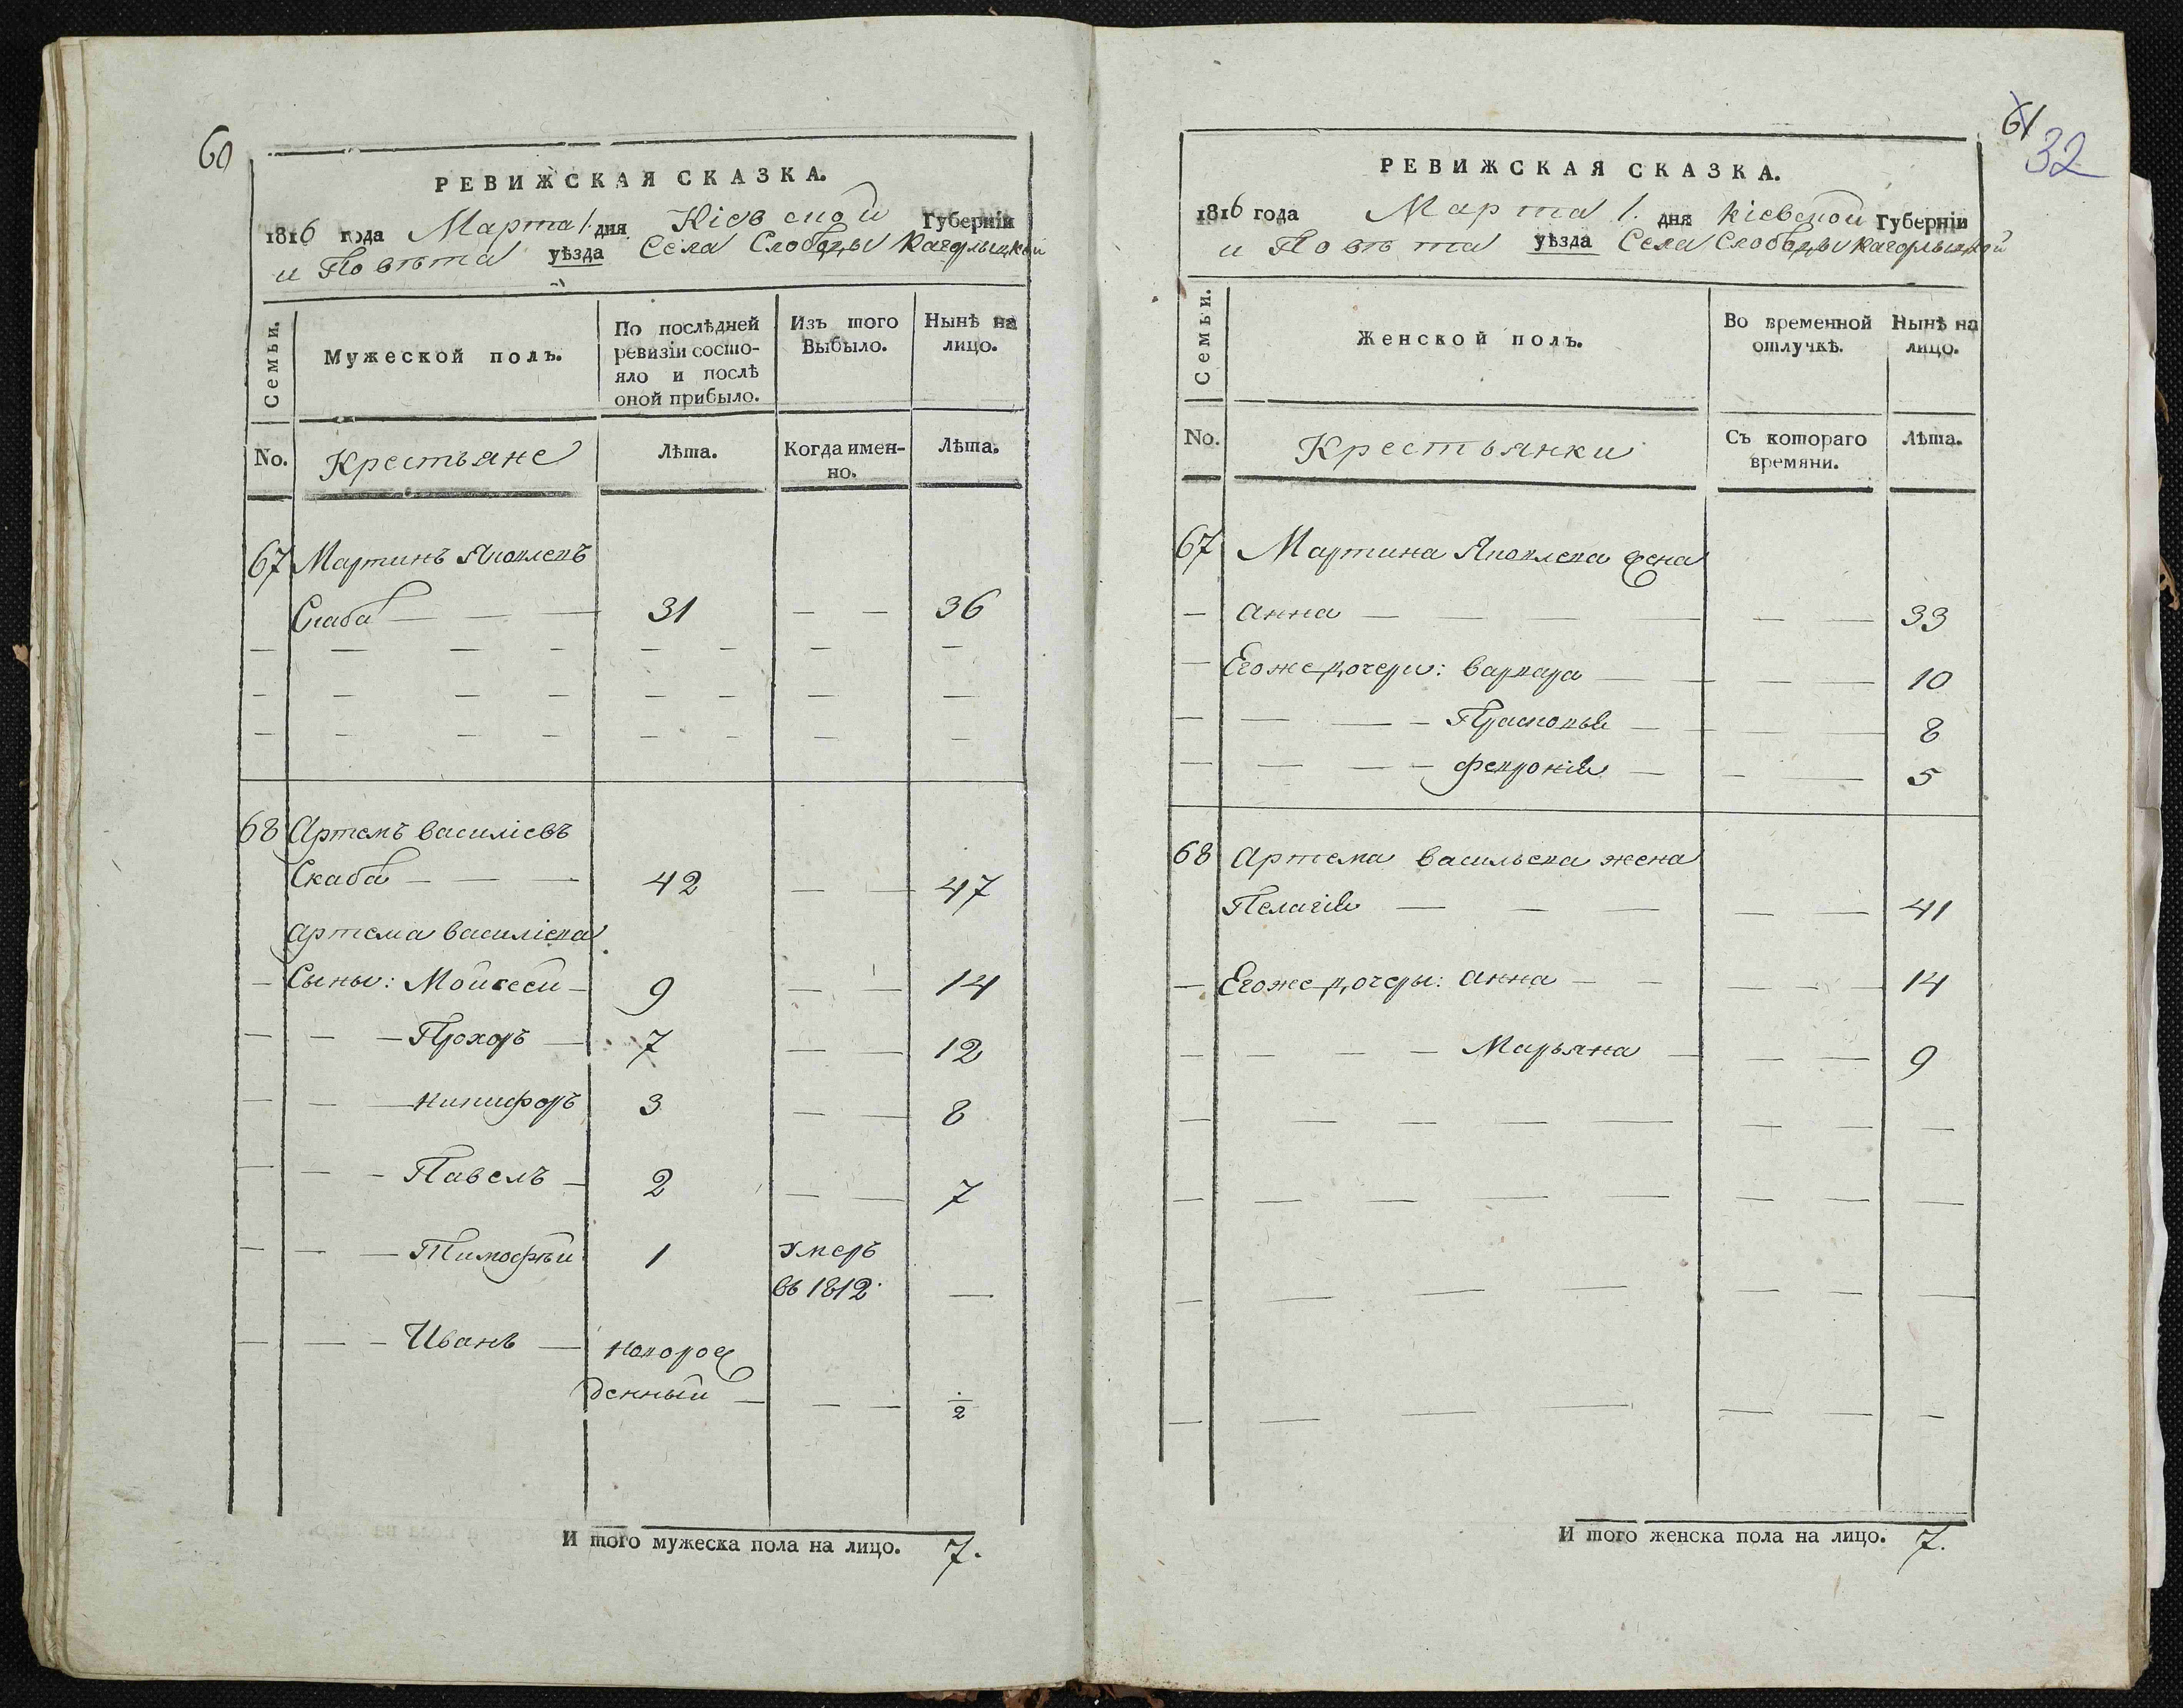 60
РЕВИЖСКАЯ СКАЗКА.
1816 года Марта 1. дня Кіевской Губерніи
и Повѣта уѣзда Села Слободы Кагорлыцкой
Семьи.
Мужеской полъ.
По послѣдней ревизіи состо-
яло и послѣ оной прибыло.
Изъ того Выбыло.
Нынѣ на лицо.
No. Крестьяне Лѣта. Когда имен-
но. Лѣта.
67 Мартинъ Яковлевъ
Скаба 31 36
68 Артемъ Василіевъ
Скаба 42 47
Артема Василіева
Сыны: Моисеи 9 14
Прохоръ 7 12
Никифоръ 3 8
Павелъ 2 7
Тимофѣи 1 умеръ
въ 1812.
Иванъ новорож
денныи 1/2
И того мужеска пола на лицо. 7.
61
32
РЕВИЖСКАЯ СКАЗКА.
1816 года Марта 1. дня Кіевской Губерніи
и Повѣта уѣзда Села Слободы Кагорлыцкой
Семьи.
Женской полъ.
Во временной отлучкѣ.
Нынѣ на лицо.
No. Крестьянки Съ котораго
времяни. Лѣта.
67 Мартина Яковлева жена
Анна 33
Егоже дочери: Варвара 10
Прасковья 8
Февронія 5
68 Артема Васильева жена
Пелагія 41
Егоже дочеры: Анна 14
Марьяна 9
И того женска пола на лицо. 7.